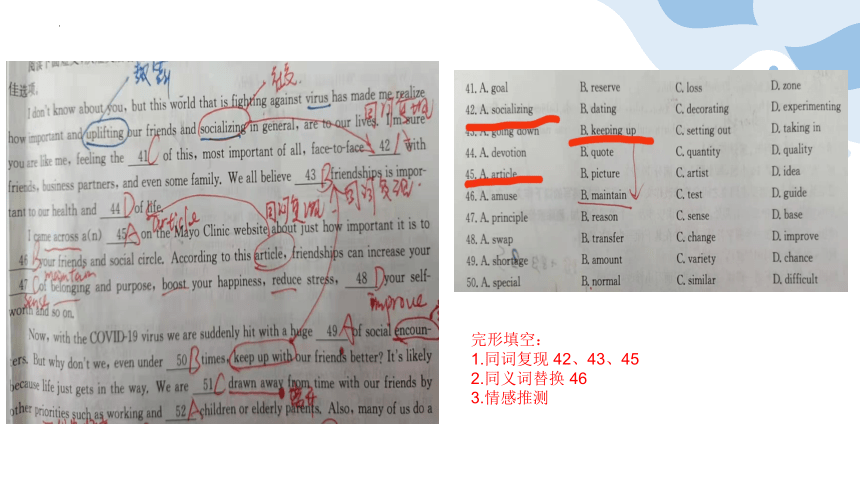 佳选项。
I don't know about you, but this world that is fighting against virus has made me realize
how important and uplifting our friends and socializing in general, are to our lives. I'm sure
you are like me, feeling the 41 C of this, most important of all, face-to-face 42 A with
friends, business partners, and even some family. We all believe 43 B friendships is impor-
tant to our health and 44 D of life.
article
同词复现
同词复现
同词复现.
I came across a(n) 45 A on the Mayo Clinic website about just how important it is to
46 B your friends and social circle. According to this article, friendships can increase your
maintain
47 C of belonging and purpose, boost your happiness, reduce stress, 48 D your self-
sense
improve
worth and so on.
Now, with the COVID-19 virus we are suddenly hit with a huge 49 A of social encoun-
ters. But why don't we, even under 50 B times, keep up with our friends better? It's likely
because life just gets in the way. We are 51 C drawn away from time with our friends by
离开
other priorities such as working and 52 A children or elderly parents. Also, many of us do a
41. A. goal B. reserve C. loss D. zone
42. A. socializing B. dating C. decorating D. experimenting
43. A. going down B. keeping up C. setting out D. taking in
44. A. devotion B. quote C. quantity D. quality
45. A. article B. picture C. artist D. idea
46. A. amuse B. maintain C. test D. guide
47. A. principle B. reason C. sense D. base
48. A. swap B. transfer C. change D. improve
49. A. shortage B. amount C. variety D. chance
50. A. special B. normal C. similar D. difficult
完形填空：
1.同词复现 42、43、45
2.同义词替换 46
3.情感推测